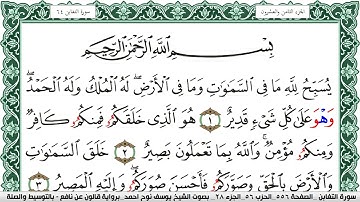 الجزء الثامن والعشرون
سورة التغابن ٦٤
بِسْمِ اللَّهِ الرَّحْمَٰنِ الرَّحِيمِ
يُسَبِّحُ لِلَّهِ مَا فِي السَّمَٰوَٰتِ وَمَا فِي الْأَرْضِ لَهُ الْمُلْكُ وَلَهُ الْحَمْدُ
وَهْوَ عَلَىٰ كُلِّ شَيْءٍ قَدِيرٌ ١ هُوَ الَّذِي خَلَقَكُمْ فَمِنكُمْ كَافِرٌ
وَمِنكُم مُّؤْمِنٌ وَاللَّهُ بِمَا تَعْمَلُونَ بَصِيرٌ ٢ خَلَقَ السَّمَٰوَٰتِ
وَالْأَرْضَ بِالْحَقِّ وَصَوَّرَكُمْ فَأَحْسَنَ صُوَرَكُمْ وَإِلَيْهِ الْمَصِيرُ ٣
سورة التغابن - الصفحة ٥٥٦ - الحزب ٥٦ - الجزء ٢٨ - بصوت الشيخ يوسف نوح أحمد - برواية قالون عن نافع - بالتوسيط والصلة